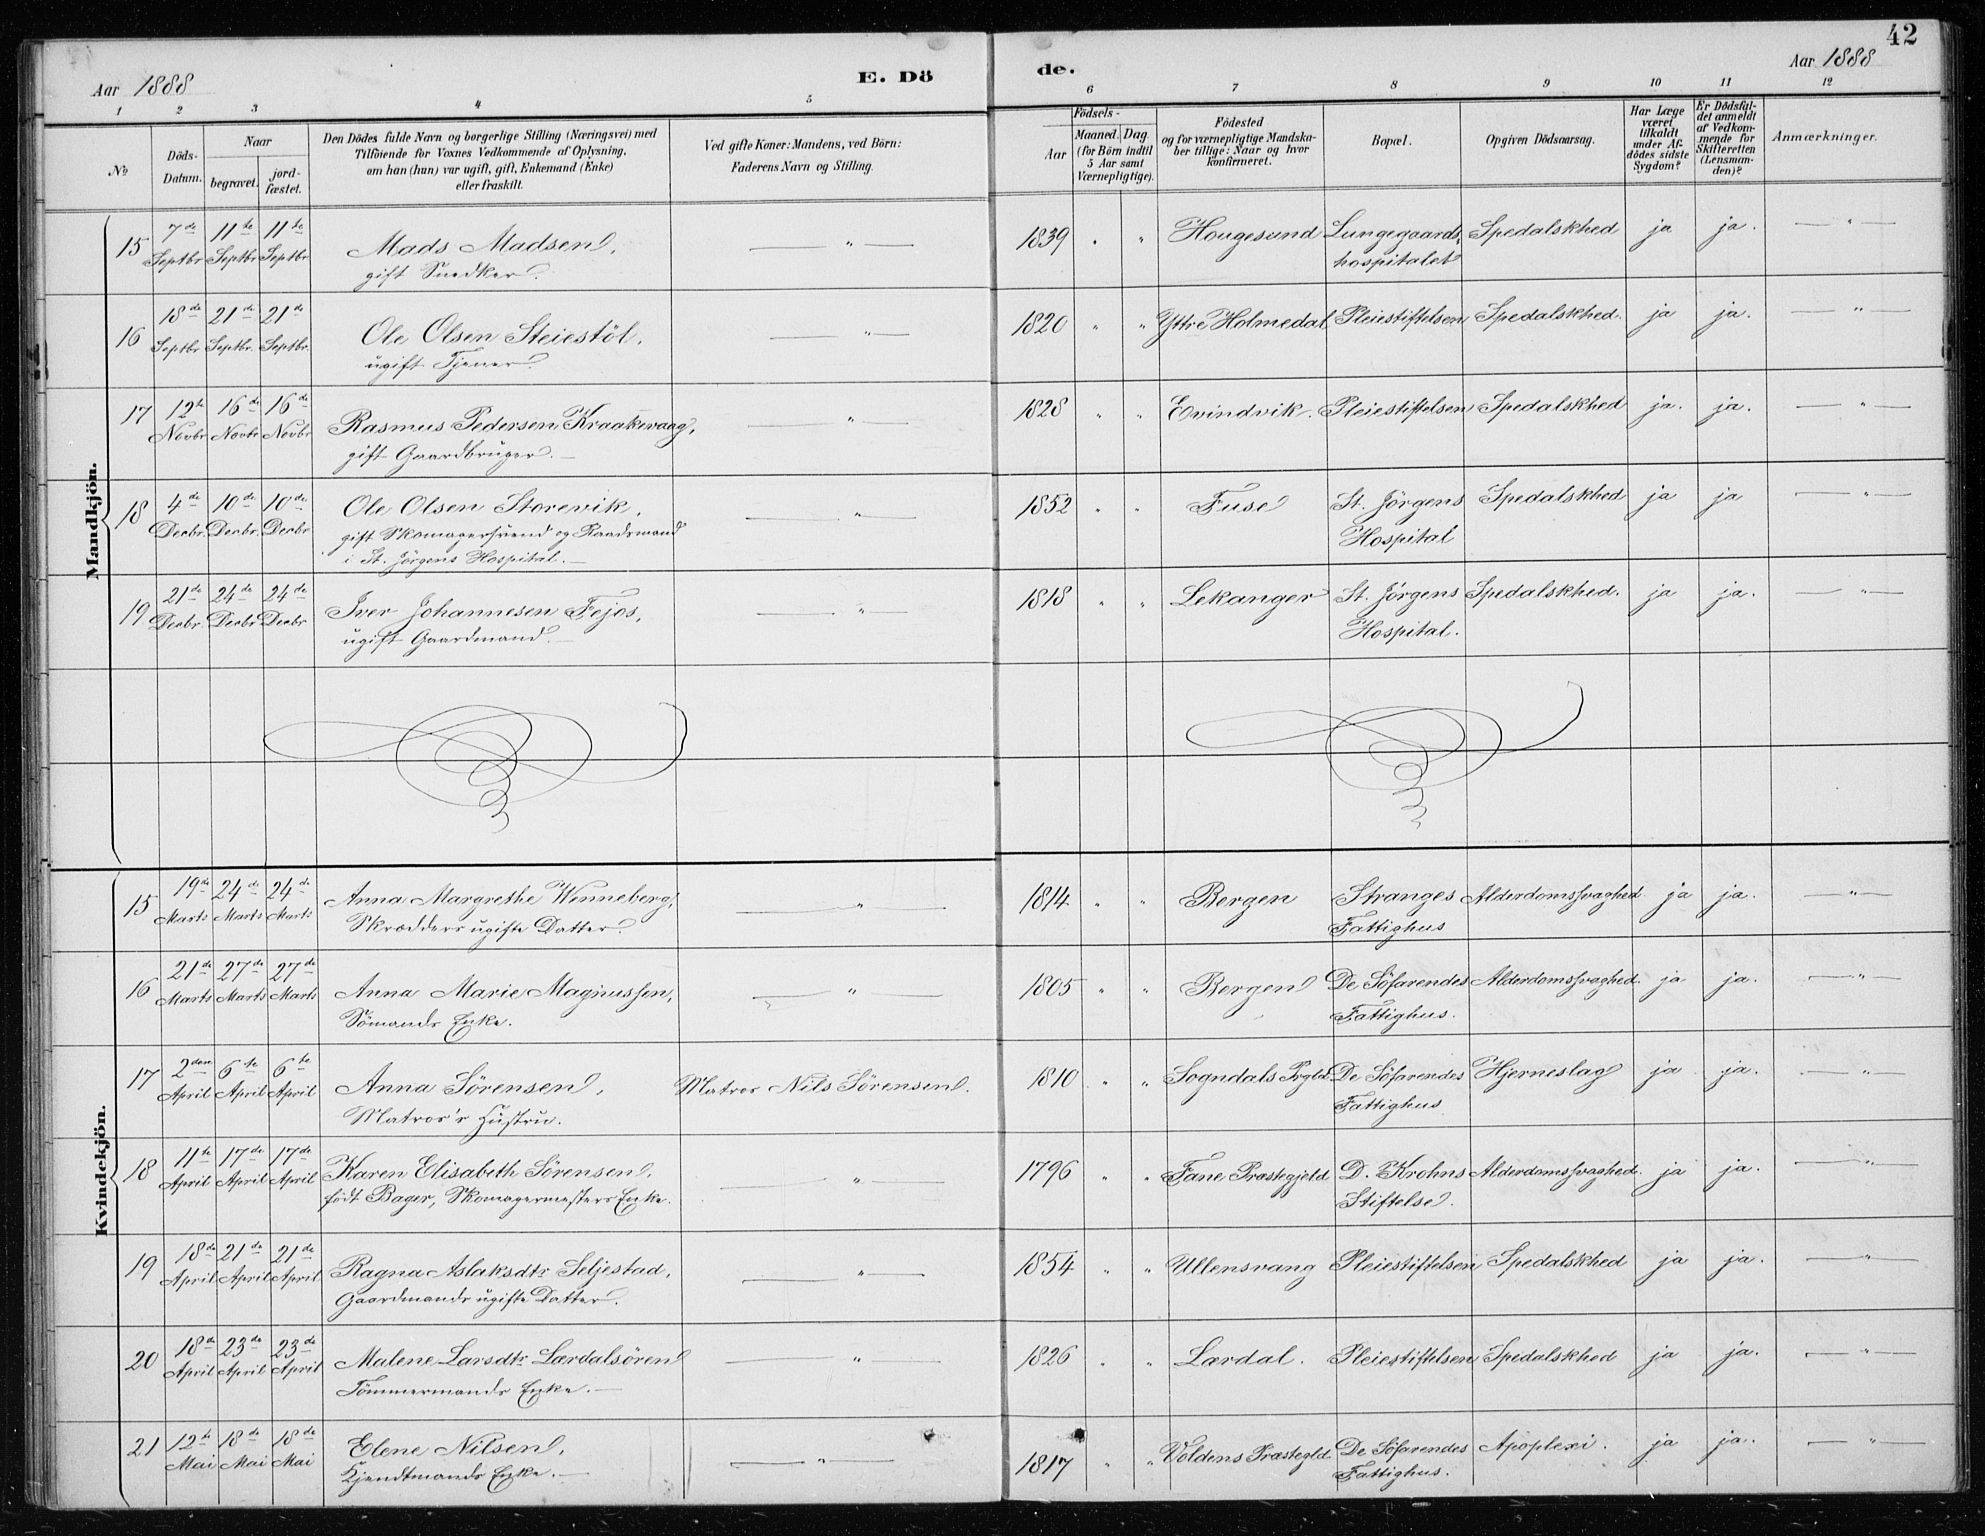 42
Aar 1888
E. Dö
de.
Aar 1888
1 2 3 4 5 6 7 8 9 10 11 12
No
Döds-Datum.
Naar
begravet.
jord-fæstet.
Den Dödes fulde Navn og borgerlige Stilling (Næringsvei) med
Tilföiende for Voxnes Vedkommende af Oplysning,
om han (hun) var ugift, gift, Enkemand (Enke)
eller fraskilt.
Ved gifte Koner: Mandens, ved Börn:
Faderens Navn og Stilling.
Födsels-
Aar
Maaned. Dag.
(for Börn indtil
5 Aar samt
Værnepligtige).
Födested
og for værnepligtige Mandska-
ber tillige: Naar og hvor
konfirmeret.
Bopæl.
Opgiven Dödsaarsag.
Har Læge
været
tilkaldt
under Af-
dödes sidste
Sygdom?
Er Dödsfal-
det anmeldt
af Vedkom-
mende for
Skifteretten
(Lensman-
den)?
Anmærkninger.
Mandkjön.
15 7de 11te 11te Mads Madsen, — " — 1839 " " Hougesund Lungegaards- Spedalskhed ja ja. — " —
Septbr Septbr Septbr gift Snedker. hospitalet
16 18de 21de 21de Ole Olsen Steiestöl, — " — 1820 " " Yttre Holmedal Pleiestiftelsen Spedalskhed. ja ja. — " —
Septbr Septbr. Septbr. ugift Tjener.
17 12te 16de 16de Rasmus Pedersen Kraakevaag, — " — 1828 " " Evindvik. Pleiestiftelsen Spedalskhed ja. ja. — " —
Novbr Novbr Novbr gift Gaardbruger. —
18 4de 10de 10de Ole Olsen Storevik, — " — 1852 " " Fuse St. Jörgens Spedalskhed ja ja — " —
Decbr. Decbr. Decbr gift Skomagersvend og Raadsmand Hospital
i St. Jörgens Hospital. —
19 21de 24de 24de Iver Johannesen Fejos, — " — 1818 " " Lekanger St. Jörgens Spedalskhed. ja ja. — " —
Decbr. Decbr Decbr ugift Gaardmand. — Hospital.
Kvindekjön.
15 19de 24de 24de Anna Margrethe Winneberg, — " — 1814 " " Bergen Stranges Alderdomssvaghed ja ja. — " —
Marts Marts Marts Skrædders ugifte Datter. Fattighus
16 21de 27de 27de Anna Marie Magnussen, — " — 1805 " " Bergen De Söfarendes Alderdomssvaghed. ja ja. — " —
Marts Marts Marts Sömands Enke. Fattighus.
17 2den 6te 6te Anna Sörensen, Matros Nils Sörensen. 1810 " " Sogndals Prgld. De Söfarendes Hjerneslag ja ja. — " —
April April April Matros's Hustru. Fattighus
18 11te 17de 17de Karen Elisabeth Sörensen, — " — 1796 " " Fane Præstegjeld D. Krohns Alderdomssvaghed. ja ja. — " —
April April April födt Bager, Skomagermesters Enke. Stiftelse.
19 18de 21de 21de Ragna Aslaksdtr Seljestad, — " — 1854 " " Ullensvang Pleiestiftelsen Spedalskhed ja ja. — " —
April April April Gaardmands ugifte Datter.
20 18de 23de 23de Malene Larsdtr Lærdalsören — " — 1826 " " Lærdal. Pleiestiftelsen Spedalskhed ja ja. — " —
April April April Tömmermands Enke. —
21 12te 18de 18de Elene Nilsen, — " — 1817 " " Voldens Præstegld. De Söfarendes Apoplexi. ja ja. — " —
Mai Mai Mai Kjendtmands Enke. — Fattighus.